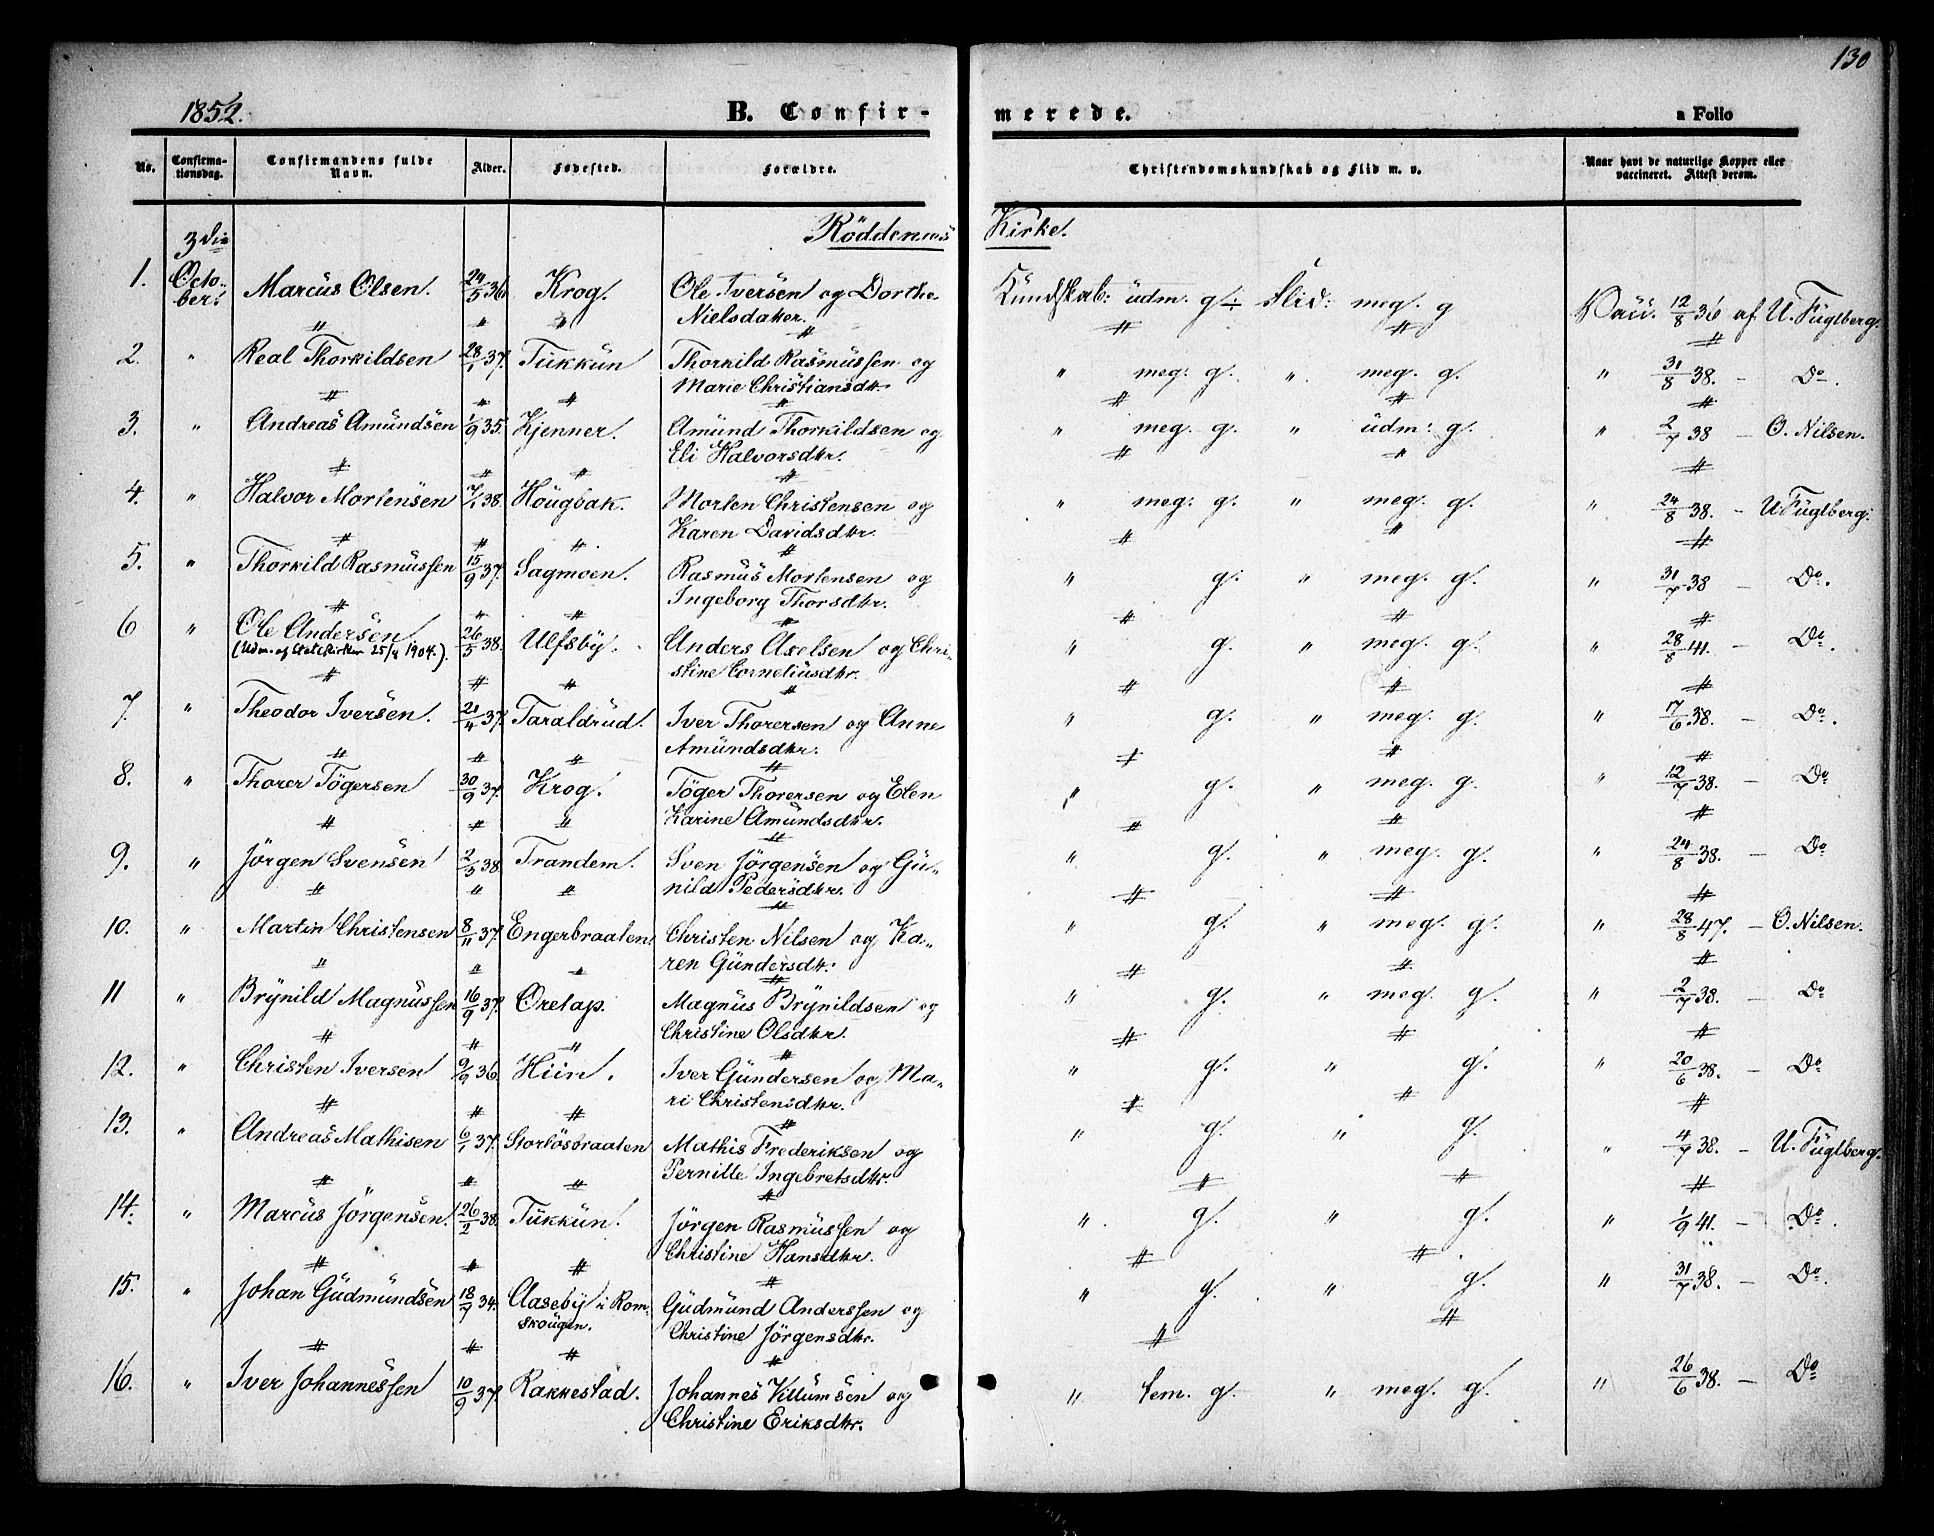 130
1852. B. Confirmerede. a Folio
No. Confirmationsdag. Confirmandens fulde Navn. Alder. Fødested. Forældre. Christendomskundskab og Flid m. v. Naar havt de naturlige Kopper eller vaccineret. Attest derom.
3die October. Röddenæs Kirke.
1. Marcus Olsen. 24/5 36 Krog. Ole Iversen og Dorthe Kundskab: udm: g: Flid: meg. g Vacc. 12/8 36 af U. Fuglberg.
Nielsdatter.
2. " Real Thorkildsen 28/1 37. Tukkun Thorkild Rasmussen og " meg: g. " meg. g. " 31/8 38. – Do.
Marie Christiansdtr.
3. " Andreas Amundsen 1/9 35. Kjenner. Amund Thorkildsen og " meg. g. " udm: g. " 2/7 38 – O. Nilsen.
Eli Halvorsdtr.
4. " Halvor Mortensen 7/1 38. Hougbak. Morten Christensen og " meg: g. " meg. g. " 24/8 38. – U Fuglberg.
Karen Davidsdtr.
5. " Thorkild Rasmussen 15/9 37. Sagmoen. Rasmus Mortensen og " g. " meg. g. " 31/7 38 – Do.
Ingeborg Thorsdtr.
6 " Ole Andersen 26/5 38. Ulfsby. Anders Axelsen og Chri- " g. " meg. g. " 28/8 41. – Do.
(Udm. af Statskirken 25/8 1904.) stine Corneliusdtr.
7. " Theodor Iversen. 21/4 37. Taraldrud. Iver Thorersen og Anne " g. " meg. g. " 17/6 38. – Do.
Amundsdtr.
8. " Thorer Tögersen 30/9 37. Krog. Töger Thorersen og Elen " g. " meg. g. " 12/7 38. – Do
Karine Amundsdtr.
9. " Jörgen Svensen 2/3 38. Trandem. Sven Jörgensen og Gu- " g. " meg. g. " 24/8 38. – Do
nild Pedersdtr.
10. " Martin Christensen 8/11 37. Engerbraaten Christen Nilsen og Ka- " g. " meg. g. " 28/8 47. – O. Nilsen.
ren Gundersdtr.
11 " Brynild Magnussen 16/9 37. Øretap. Magnus Brynildsen og " g. " meg. g. " 2/7 38. – Do
Christine Olsdtr.
12. " Christen Iversen 9/9 36. Hiin. Iver Gundersen og Ma- " g. " g. " 20/6 38. – Do.
ri Christensdtr.
13. " Andreas Mathisen 6/1 37. Stortösbraaten Mathis Frederiksen og " g. " g. " 4/7 38. – U. Fuglberg.
Pernille Ingebretsdtr.
14. " Marcus Jörgensen. 26/2 38. Tukkun. Jörgen Rasmussen og " g. " g. " 1/9 41. – Do.
Christine Hansdtr.
15. " Johan Gudmundsen 18/7 34. Aaseby i Rom- Gudmund Anderssen og " g. " g. " 31/7 38. – Do.
skougen. Christine Jörgensdtr.
16. " Iver Johannessen 10/9 37. Rakkestad. Johannes Killumsen og " tem. g. " meg. g. " 26/6 38. – Do
Christine Eriksdtr.